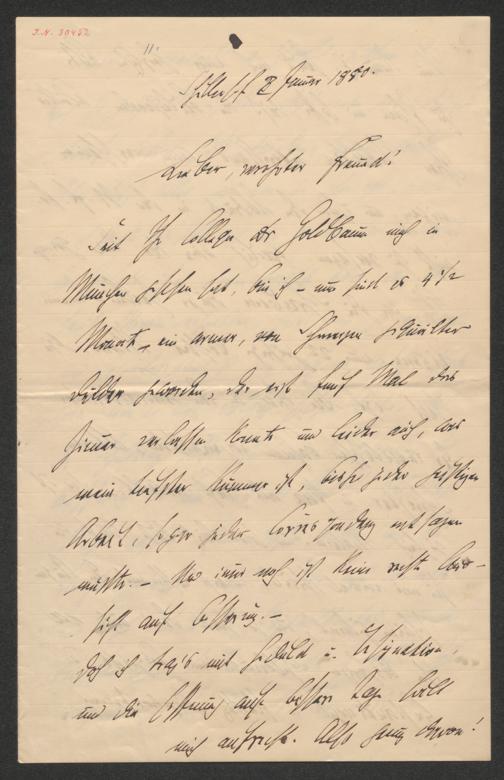 I.N. 30452
8 Januar 1880.
Lieber, verehrter Freund!
Seit Ihr College Dr Goldbaum mich in
München gesehen hat, bin ich – nun sind es 4 1/2
Monate – ein armer, von Schmerzen gequälter
Dulder geworden, der erst fünf Mal das
Zimmer verlassen konnte und leider auch, was
mein tiefster Kummer ist, bisher jeder geistigen
Arbeit, sogar jeder Correspondenz entsagen
musste. – Und immer noch ist keine rechte Aus-
sicht auf Besserung. –
Doch ich trag's mit Geduld u. Resignation,
und die Hoffnung auf bessere Tage hält
mich aufrecht. Also genug davon!